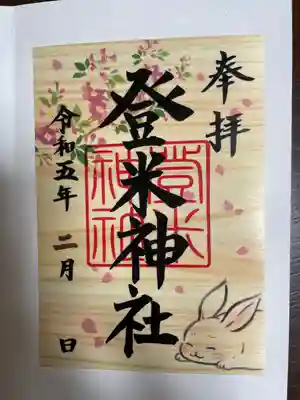 奉拝
登米神社
登米神社
令和五年 二月 日